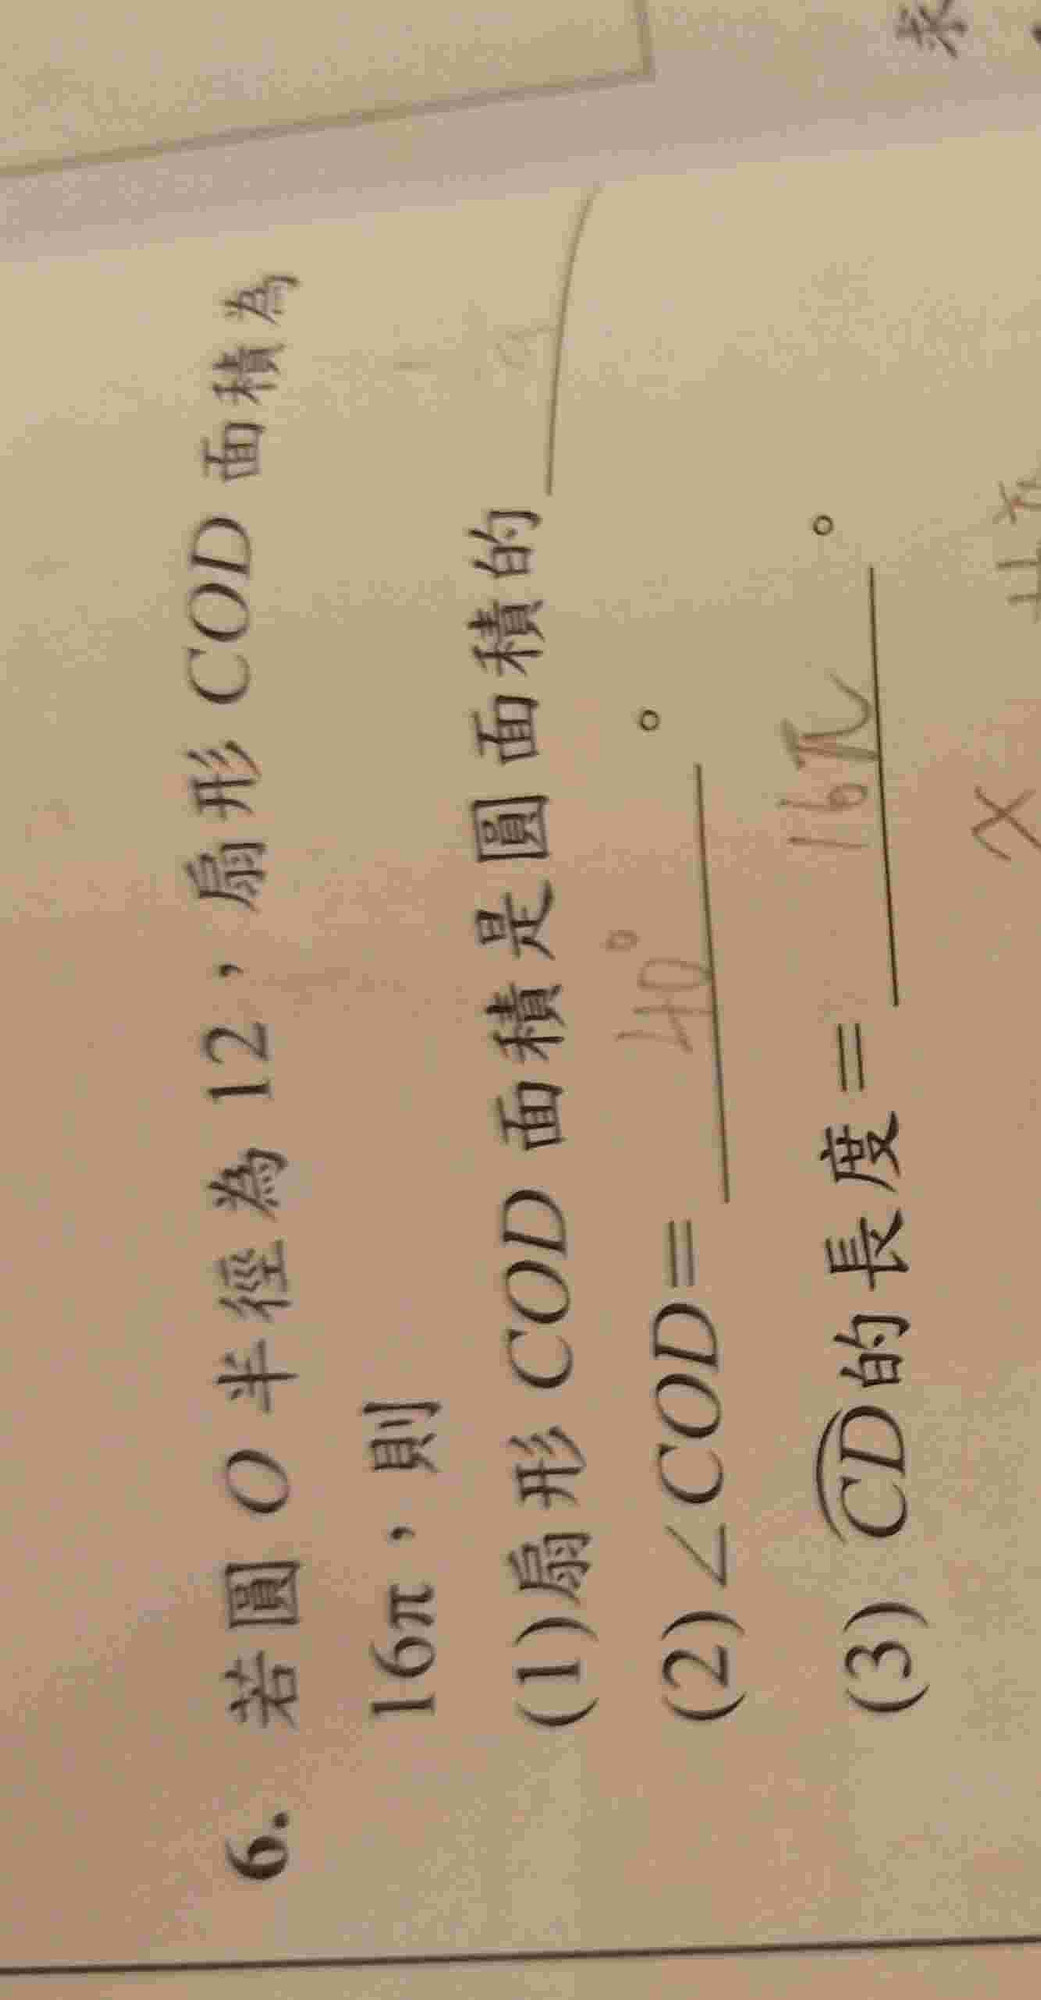 6. 若圓 O 半徑為 12,扇形 COD 面積為
16π,則
(1)扇形 COD 面積是圓面積的
(2)∠COD= 40° 。
(3) CD的長度= 16π 。
x